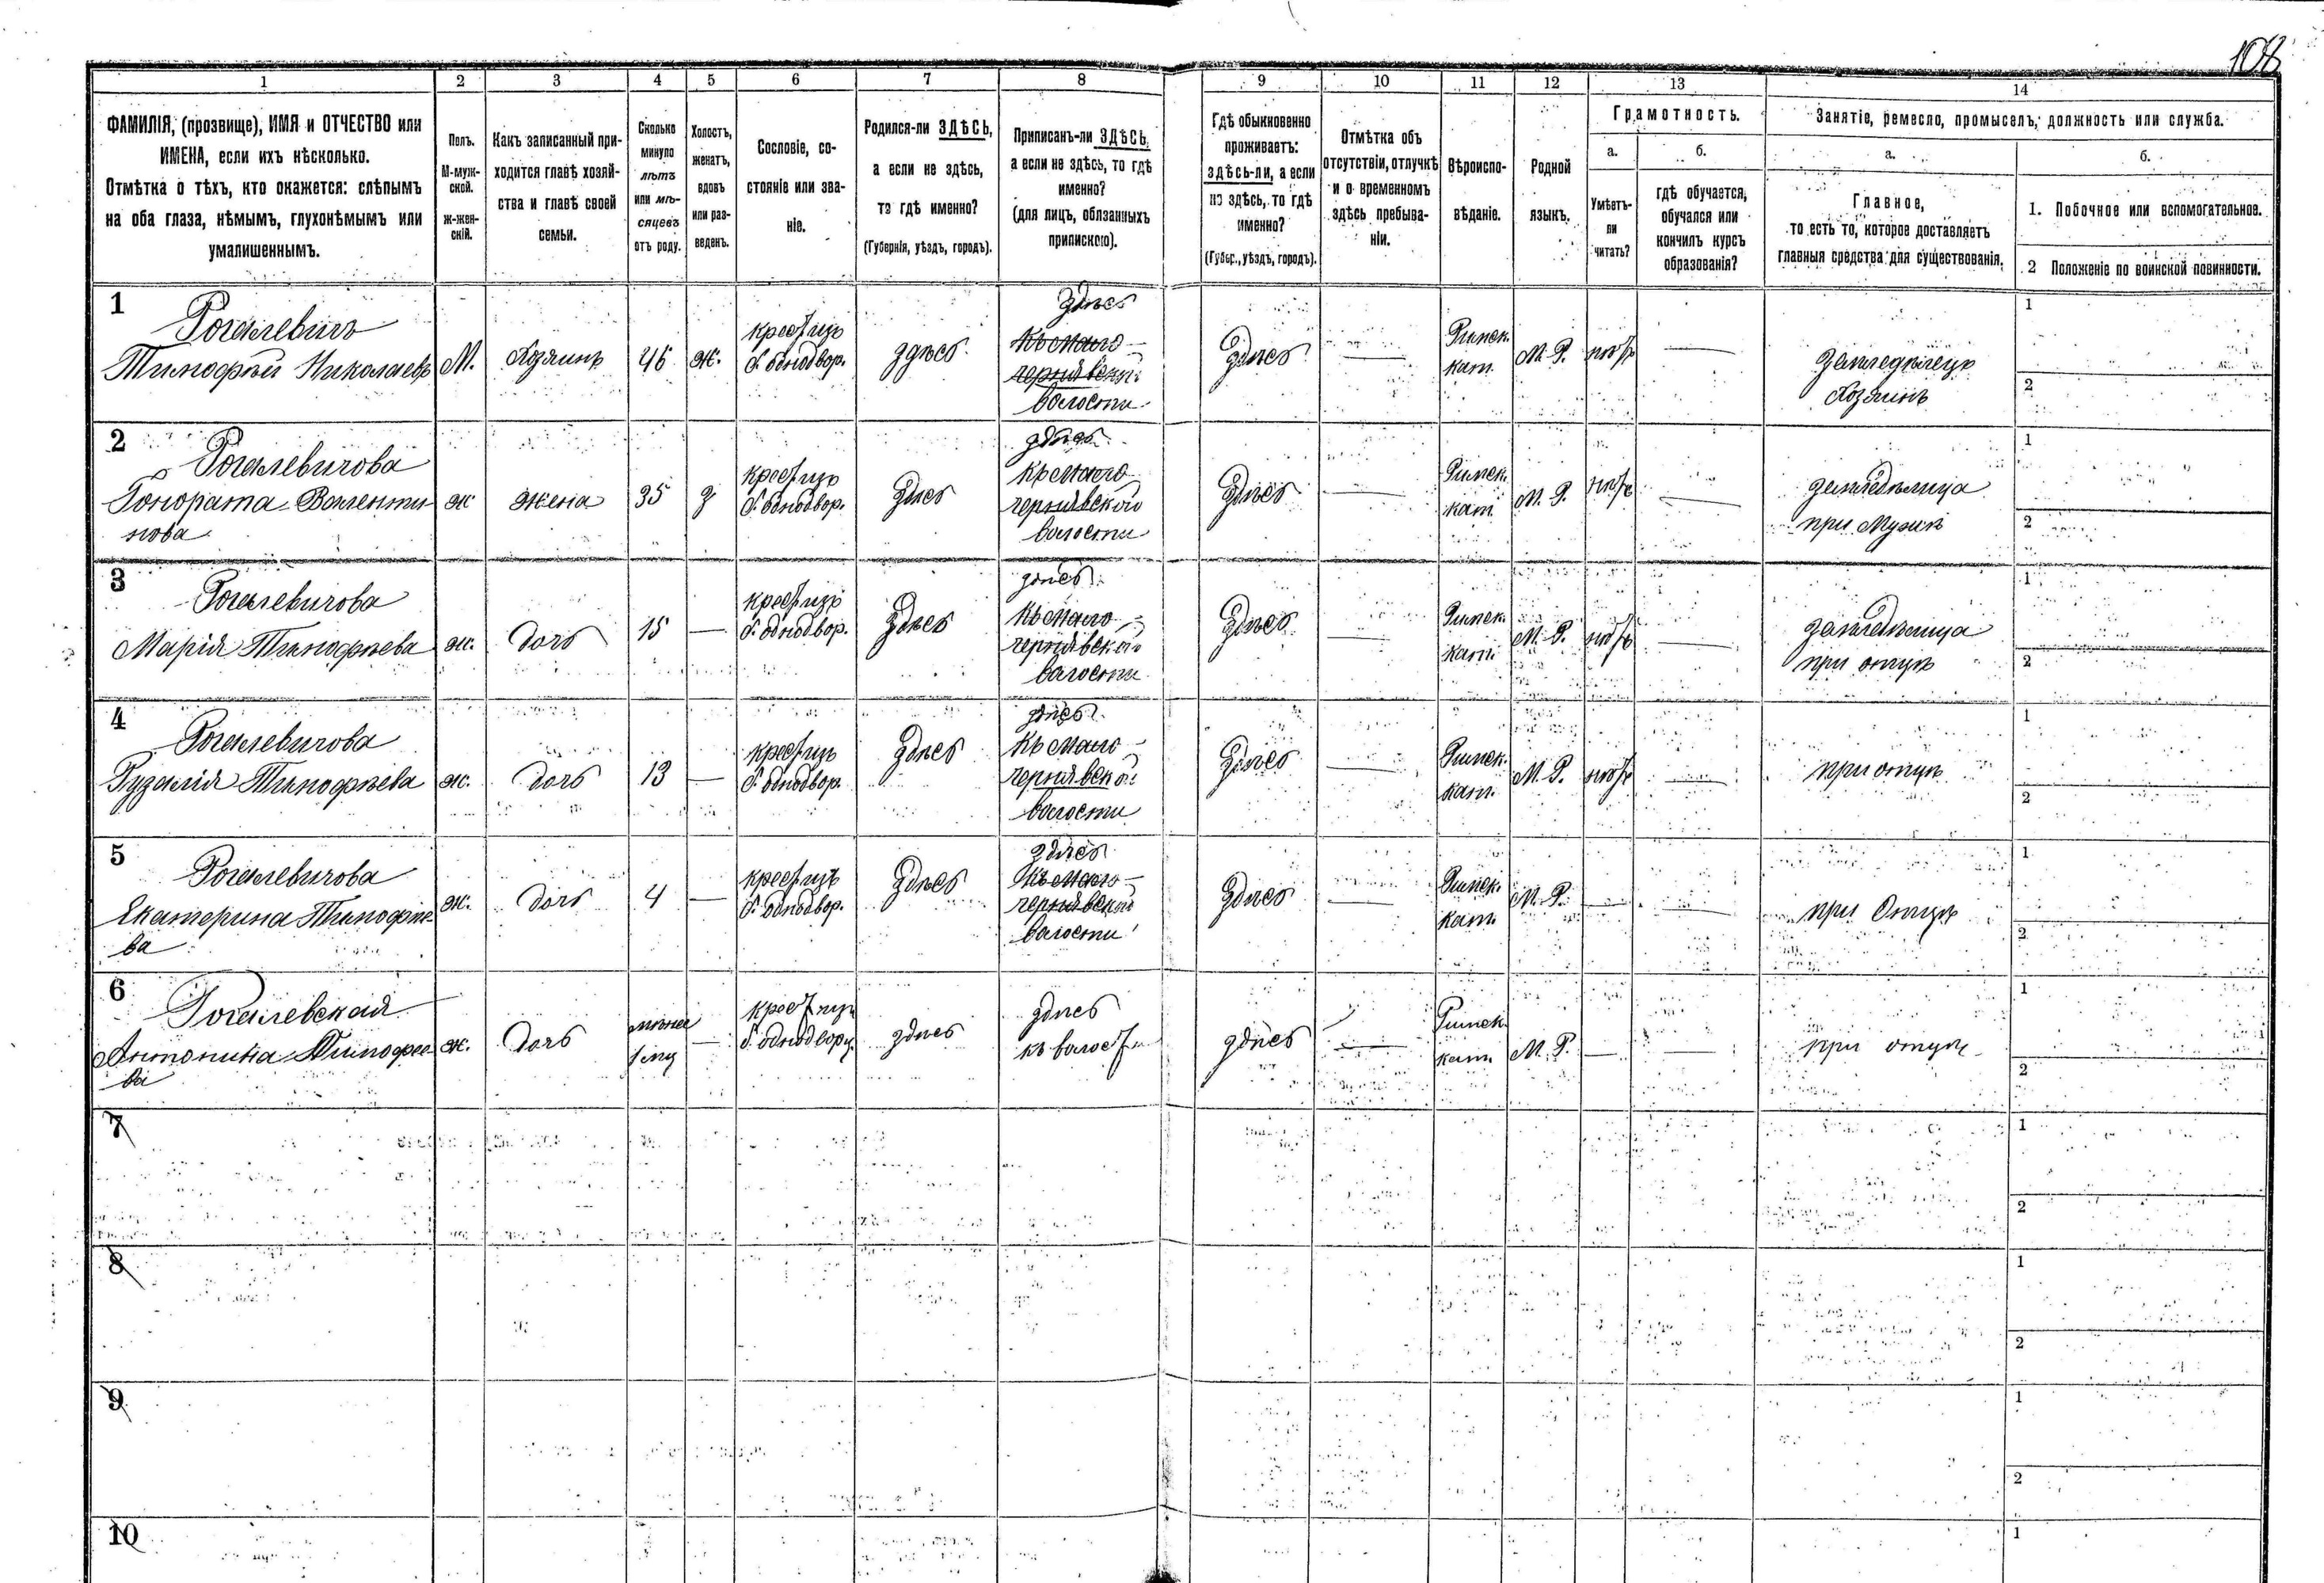 108
1 2 3 4 5 6 7 8 9 10 11 12 13 14
ФАМИЛІЯ, (прозвище), ИМЯ и ОТЧЕСТВО или
ИМЕНА, если ихъ нѣсколько.
Отмѣтка о тѣхъ, кто окажется: слѣпымъ
на оба глаза, нѣмымъ, глухонѣмымъ или
умалишеннымъ.
Полъ.
М-муж-
ской.
ж-жен-
скій.
Какъ записанный при-
ходится главѣ хозяй-
ства и главѣ своей
семьи.
Сколько
минуло
лѣтъ
или мѣ-
сяцевъ
отъ роду.
Холостъ,
женатъ,
вдовъ
или раз-
веденъ.
Сословіе, со-
стояніе или зва-
ніе.
Родился-ли ЗДѢСЬ,
а если не здѣсь,
то гдѣ именно?
(Губернія, уѣздъ, городъ).
Приписанъ-ли ЗДѢСЬ,
а если не здѣсь, то гдѣ
именно?
(для лицъ, обязанныхъ
припискою).
Гдѣ обыкновенно
проживаетъ:
здѣсь-ли, а если
не здѣсь, то гдѣ
именно?
(Губер., уѣздъ, городъ).
Отмѣтка объ
отсутствіи, отлучкѣ
и о временномъ
здѣсь пребыва-
ніи.
Вѣроиспо-
вѣданіе.
Родной
языкъ.
Грамотность.
а.
Умѣетъ-
ли
читать?
б.
гдѣ обучается,
обучался или
кончилъ курсъ
образованія?
Занятіе, ремесло, промыселъ, должность или служба.
а.
Главное,
то есть то, которое доставляетъ
главныя средства для существованія.
б.
1. Побочное или вспомогательное.
2 Положеніе по воинской повинности.
1
Рогалевичъ
Тимофѣй Николаевъ М. Хозяинъ 46 ж.
крест изъ
б. однодвор.
здѣсь
здѣсь
волости
здѣсь
Римск.
кат.
М. Р.
земледѣлецъ
Хозяинъ
1
2
2
Рогалевичова
Гонората Валенти-
нова
ж жена 35 з
крест изъ
б. однодвор.
здѣсь
здѣсь
волости
здѣсь
Римск.
кат
М. Р.
земледѣлица
при Мужѣ
1
2
3
Рогалевичова
Марія Тимофѣева ж. дочь 15 —
крест изъ
б. однодвор.
здѣсь
здѣсь
волости
здѣсь
Римск.
кат.
М. Р.
земледѣлица
при отцѣ
1
2
4
Рогалевичова
Рузалія Тимофѣева ж. дочь 13 —
крест изъ
б. однодвор.
здѣсь
здѣсь
волости
здѣсь
Римск.
кат.
М. Р.
при отцѣ
1
2
5
Рогалевичова
Екатерина Тимофѣе
ва
ж. дочь 4 —
крест изъ
б. однодвор.
здѣсь
здѣсь
волости
здѣсь
Римск.
кат
М. Р.
при Отцѣ
1
2
6
Рогалевская
Антонина Тимофее
ва
ж. дочь
менее
году
—
крест изъ
б. однодворц
здѣсь
здѣсь
къ волост
здѣсь
Римск.
кат
М. Р.
при отцѣ
1
2
7
1
2
8
1
2
9
1
2
10
1